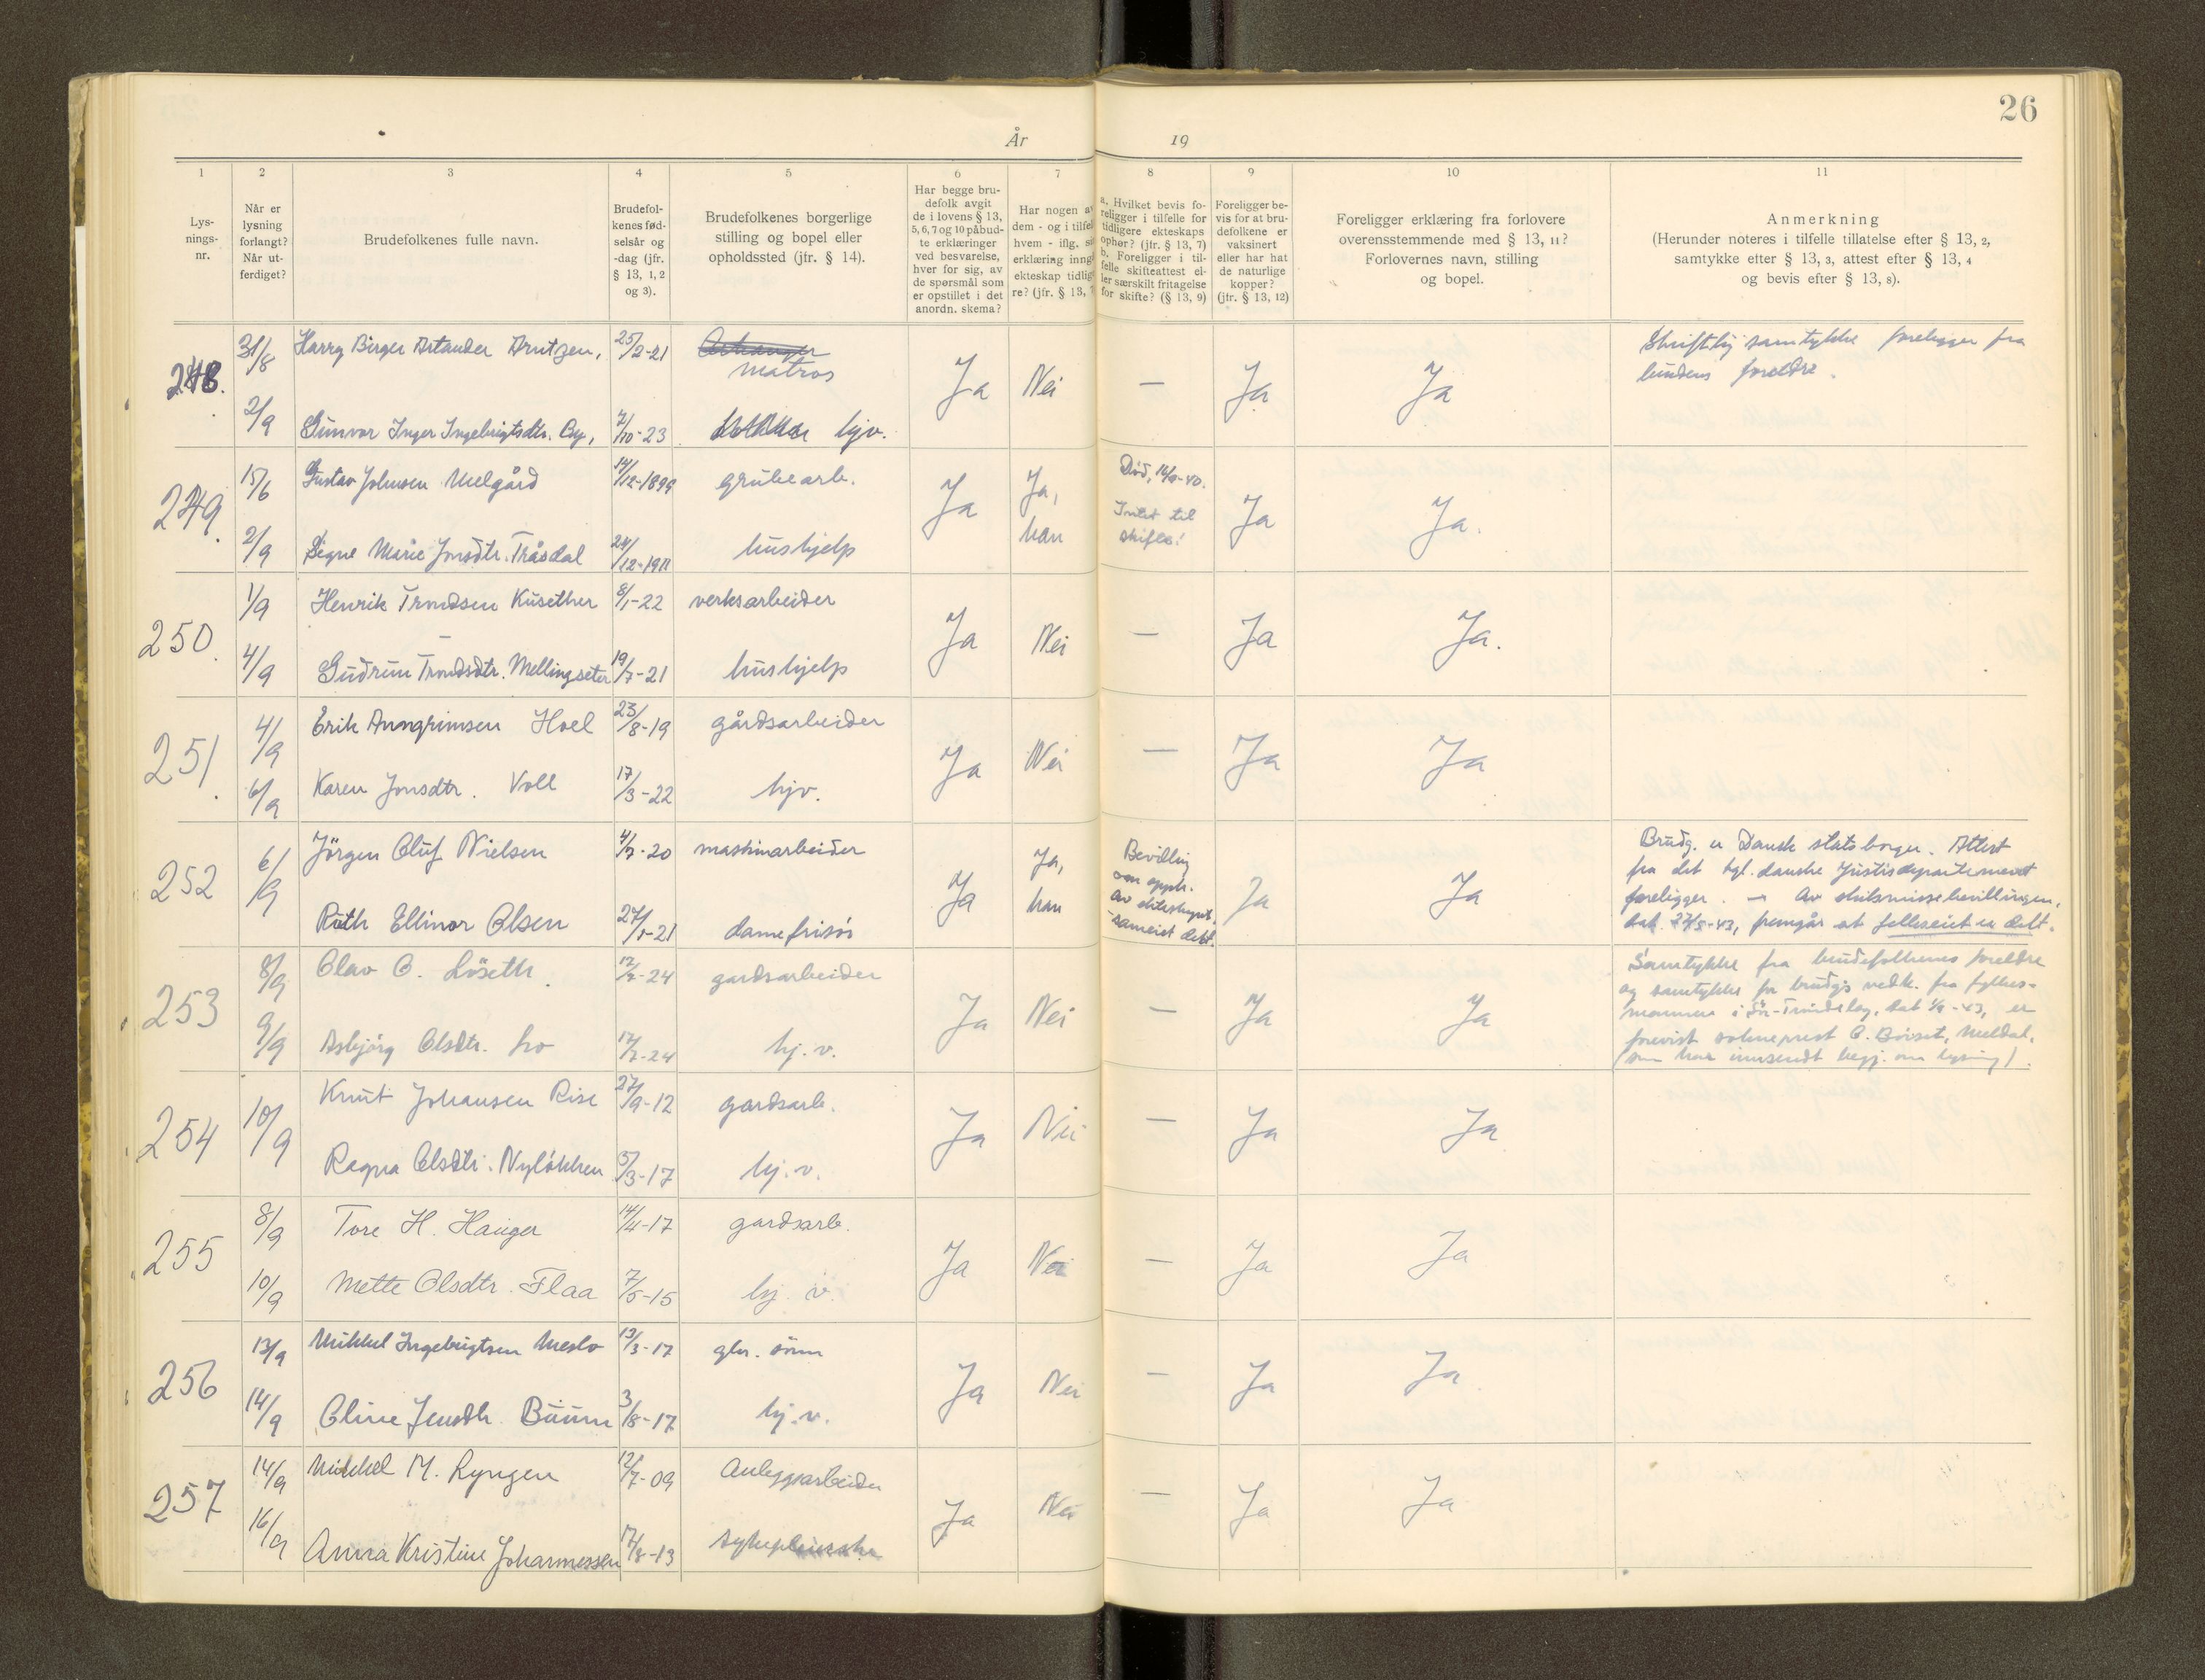 26
År 19
1
Lys-
nings-
nr.
2
Når er
lysning
forlangt?
Når ut-
ferdiget?
3
Brudefolkenes fulle navn.
4
Brudefol-
kenes fød-
selsår og
-dag (jfr.
§ 13, 1, 2
og 3).
5
Brudefolkenes borgerlige
stilling og bopel eller
opholdssted (jfr. § 14).
6
Har begge bru-
defolk avgit
de i lovens § 13,
5, 6, 7 og 10 påbud-
te erklæringer
ved besvarelse,
hver for sig, av
de spørsmål som
er opstillet i det
anordn. skema?
7
Har nogen av
dem - og i tilfel
hvem - iflg. si
erklæring inng
ekteskap tidlig
re? (jfr. § 13, 7
8
a. Hvilket bevis fo-
religger i tilfelle for
tidligere ekteskaps
ophør? (jfr. § 13, 7)
b. Foreligger i til-
felle skifteattest el-
ler særskilt fritagelse
for skifte? (§ 13, 9)
9
Foreligger be-
vis for at bru-
defolkene er
vaksinert
eller har hat
de naturlige
kopper?
(jfr. § 13, 12)
10
Foreligger erklæring fra forlovere
overensstemmende med § 13, 11?
Forlovernes navn, stilling
og bopel.
11
Anmerkning
(Herunder noteres i tilfelle tillatelse efter § 13, 2,
samtykke etter § 13, 3, attest efter § 13, 4
og bevis efter § 13, 8).
248.
31/8 Harry Birger Artander Arntzen, 25/2-21
matros
Ja Nei — Ja Ja
Skriftlig samtykke foreligger fra
brudens foreldre.
2/9 Gunvor Inger Ingebrigtsdtr. By, 7/10-23 hjv.
249.
15/6 Gustav Johnsen Melgård 14/12-1899 grubearb.
Ja Ja, han
Død, 16/9-40.
Intet til
skifte!
Ja Ja.
2/9 Signe Marie Jonsdtr. Tråsdal 24/12-1911 hushjelp
250.
1/9 Henrik Trondsen Kusether 8/1-22 verksarbeider
Ja Nei — Ja Ja.
4/9 Gudrun Trondsdtr. Mellingseter 19/7-21 hushjelp
251.
4/9 Erik Arngrimsen Hoel 23/8-19 gårdsarbeider
Ja Nei — Ja Ja
6/9 Karen Jonsdtr. Voll 17/3-22 hjv.
252
6/9 Jörgen Oluf Nielsen 4/7-20 maskinarbeider
Ja Ja, han
Bevilling
om opph.
av ekteskapet.
-sameiet delt.
Ja Ja
Brudg. er Dansk statsborger. Attest
fra det kgl. danske Justisdepartement
foreligger. — Av skilsmissebevillingen,
dat. 27/5-43, fremgår at felleseiet er delt.
Ruth Ellinor Olsen 27/1-21 damefrisör
253
8/9 Olav O. Löseth. 12/2-24 gardsarbeider
Ja Nei — Ja Ja
Samtykke fra brudefolkenes foreldre
og samtykke for brudg's vedk. fra fylkes-
mannen i Sör-Tröndelag, dat 1/9-43, er
forevist sokneprest O. Böiset, Meldal,
(som har innsendt begj. om lysning).
9/9 Asbjörg Olsdtr. Lo 17/7-24 hj.v.
254
10/9 Knut Johansen Rise 27/9-12 gardsarb.
Ja Nei — Ja Ja
Ragna Olsdtr. Nylökken 5/3-17 hj.v.
255
8/9 Tore H. Hauger 14/4-17 gardsarb.
Ja Nei — Ja Ja
10/9 Mette Olsdtr. Flaa 7/5-15 hj. v.
256
13/9 Mikkel Ingebrigtsen Meslo 13/3-17 gbr. sönn
Ja Nei — Ja Ja
14/9 Oline Jensdtr. Buum 3/8-17 hj.v.
257
14/9 Mikkel M. Ryngen 12/7-09 Anleggsarbeider
Ja Nei — Ja Ja
16/9 Anna Kristine Johannessen 17/8-13 sykepleierske